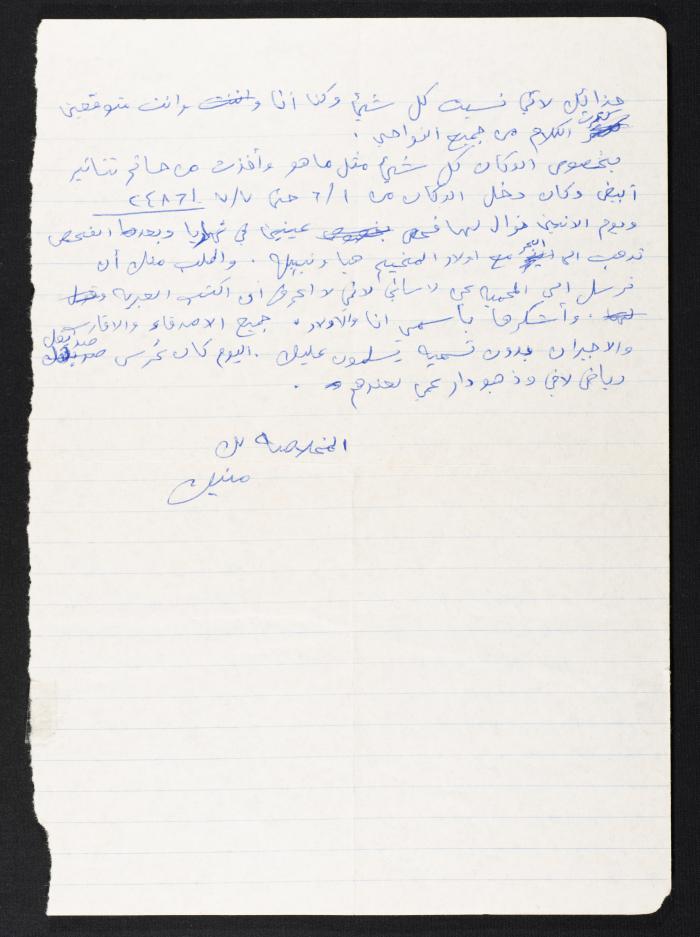 حذائك لاني نسيت كل شيئ وكنا أنا وانت متوقعين
الكلام من جميع النواحي .
بخصوص الدكان كل شيئ مثل ما هو وأخذت من حاتم تنانير
أبيض وكان دخل الدكان من ٦/١ حتى ٧/٧ ٢٤٨٦١
ويوم الاثنين نوال لها فحص عينين في نهاريا وبعدها الفحص
تذهب الى البحر مع اولاد المخيم هبا ونبيله . والطلب منك أن
ترسل الى المحبيه عن لساني لاني لا اعرف أن اكتب العبريه
وأشكرها بأسمي انا والأولاد . جميع الاصدقاء والاقارب
والاجيران بدون تسميه يسلمون عليك . اليوم كان عرس صديقك
رياض لافي وذهبو دار عمي لعندهم .
المخلصه لك